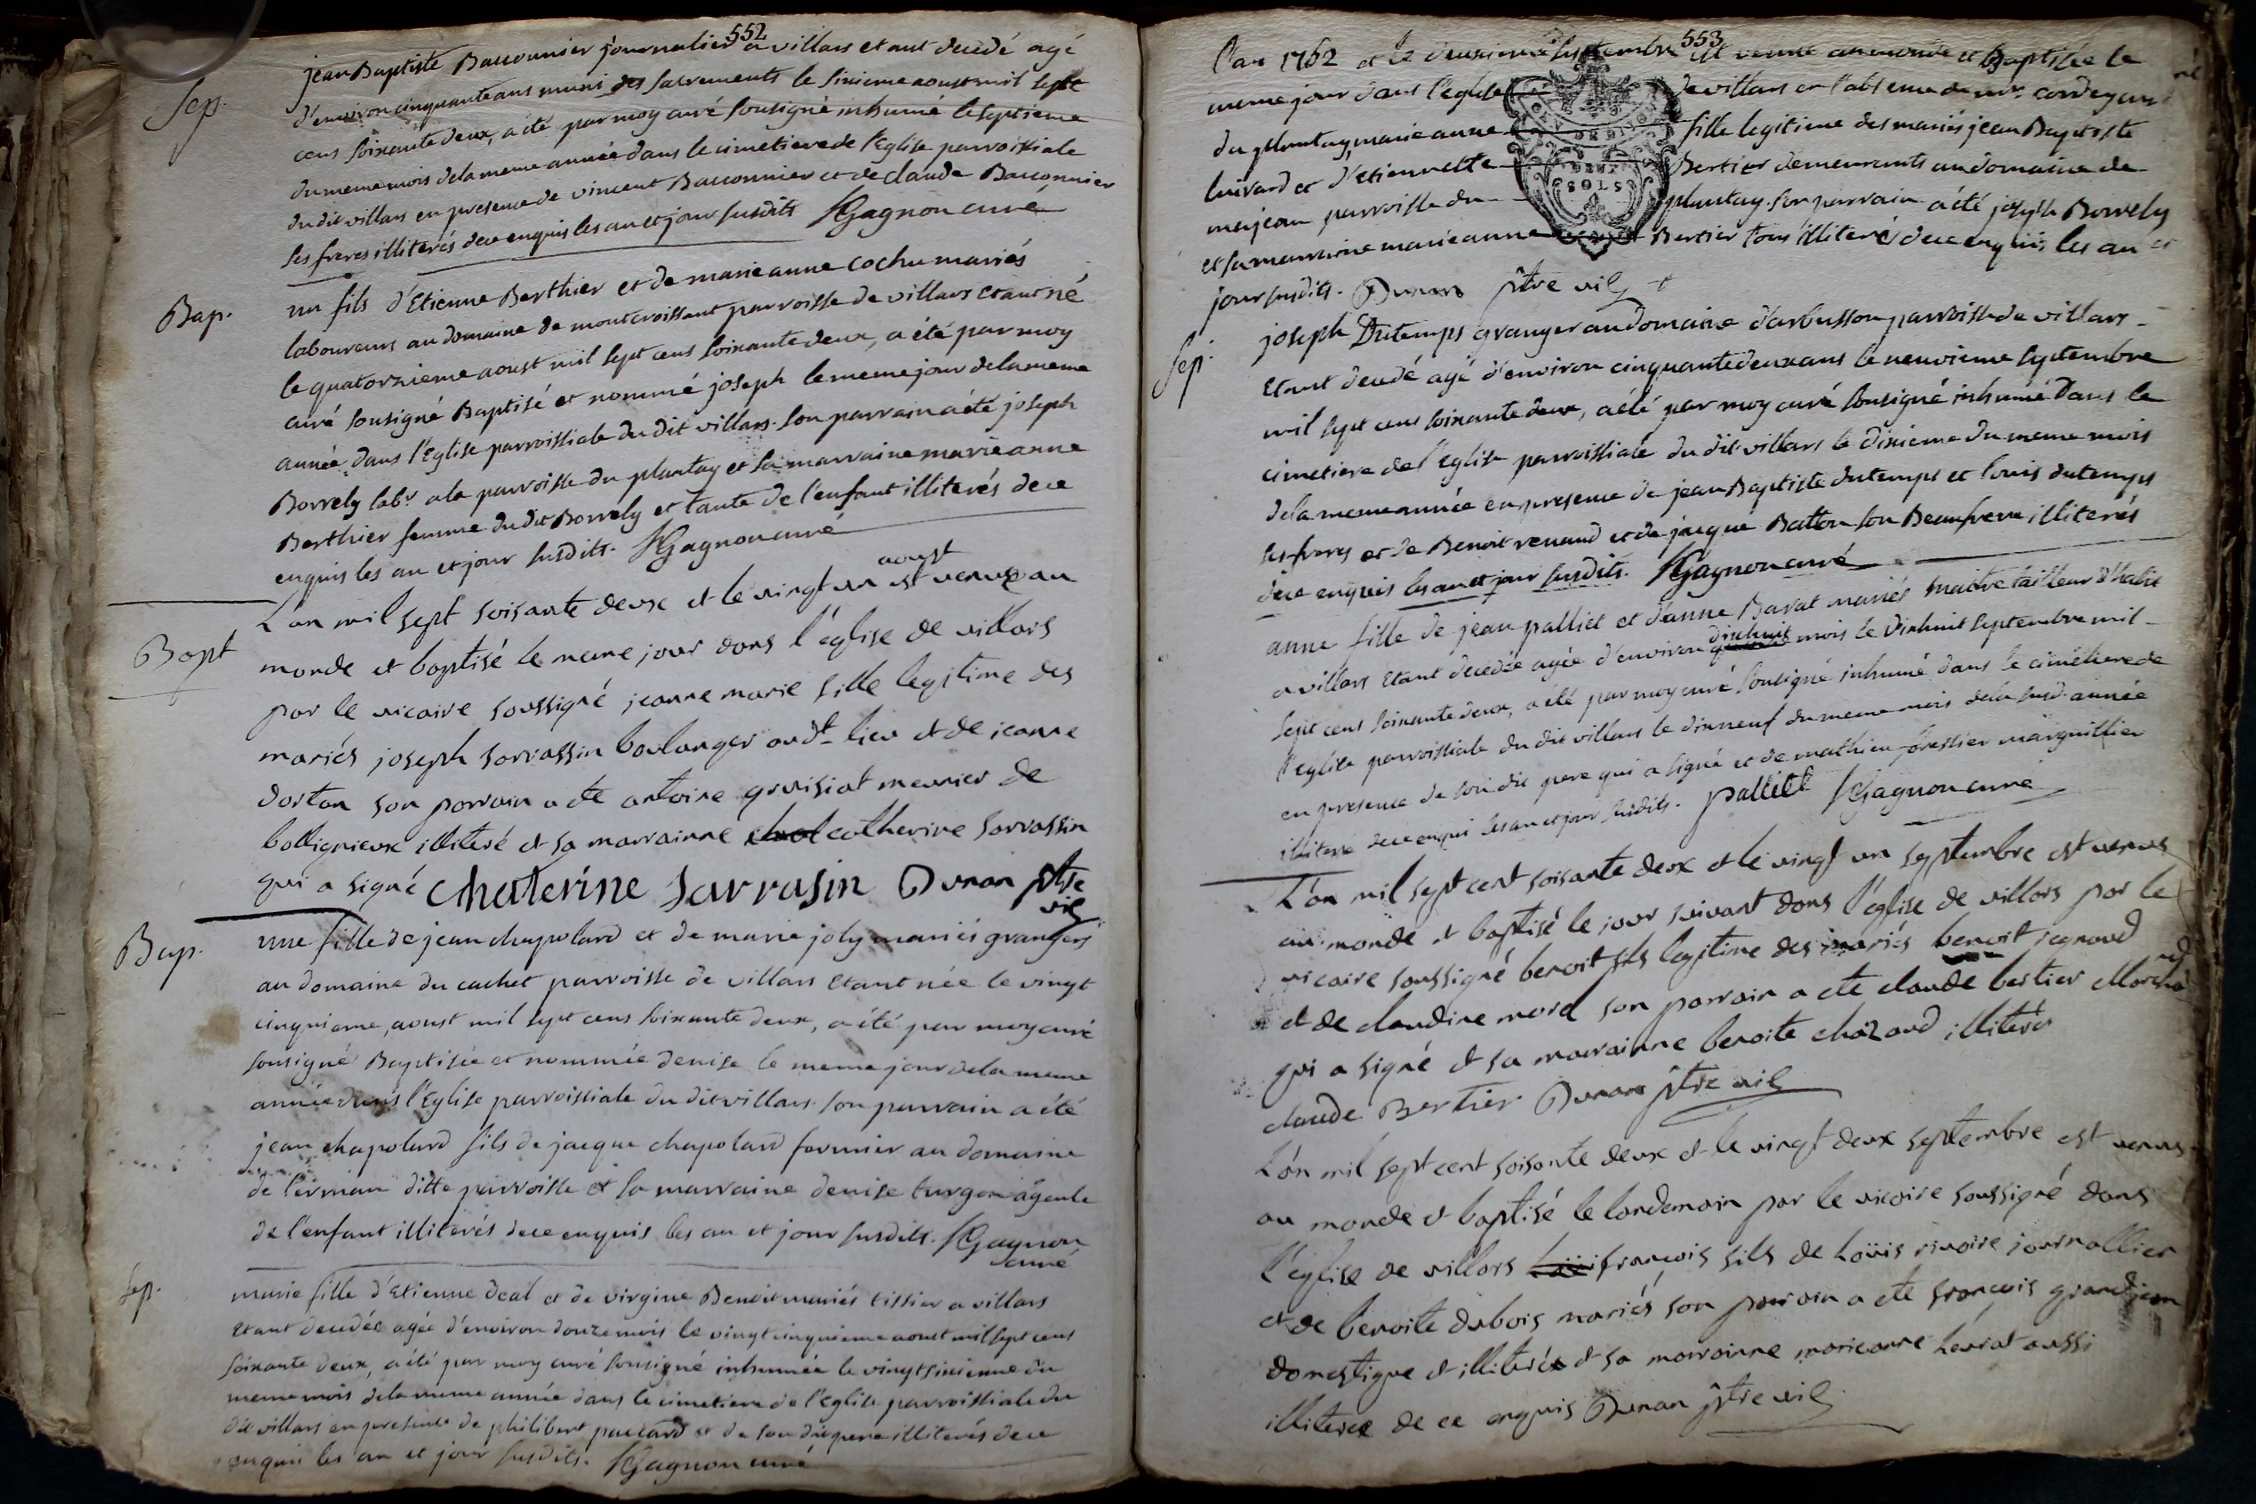 552
Sep.
jean Baptiste Bauonnier journalier a villars etant decedé agé
d'environ cinquante ans muni des sacrements le sixieme aoust mil sept
cens soixante deux, a été par moy curé sousigné inhumé le septieme
du meme mois dela meme année dans le cimetiere de l'Eglise parroissiale
du dit villars en presence de vincent Bauonnier et de claude Bauonnier
ses freres illiterés dece enquis les an et jour susdits Gagnon curé
Bap.
un fils d'Etienne Berthier et de marie anne cochu mariés
laboureurs au domaine de montcroissant parroisse de villars etant né
le quatorzieme aoust mil sept cens soixante deux, a été par moy
curé sousigné Baptisé et nommé joseph le meme jour dela meme
année dans l'Eglise parroissiale du dit villars. son parrain a été joseph
Borrely labr. a la parroisse du plantay et sa marraine marie anne
Berthier femme du dit Borrely et tante de l'enfant illiterés dece
enquis les an et jour susdits. Gagnon curé
aoust
Bapt
L'an mil sept soisante deux et le vingt un est venue au
monde et baptisé le meme jour dans l'église de villars
par le vicaire soussigné jeanne marie fille legitime des
mariés joseph sarrassin boulanger aud. lieu et de jeanne
dortan son parrain a ete antoine gruisiat meunier de
bouligneux illiteré et sa marrainne catherine sarrassin
qui a signé chaterine Sarrasin Dunan ptre
vic
Bap.
une fille de jean chapolard et de marie joly mariés grangers
au domaine du cachet parroisse de villars etant née le vingt
cinquieme aoust mil sept cens soixante deux, a été par moy curé
sousigné Baptisée et nommée denise le meme jour dela meme
année dans l'Eglise parroissiale du dit villars. son parrain a été
jean chapolard fils de jacque chapolard fermier au domaine
de l'erman ditte parroisse et sa marraine denise turgon
de l'enfant illiterés dece enquis les an et jour susdits. Gagnon
curé
Sep.
marie fille d'Etienne deal et de virgine Benoit mariés tissier a villars
etant decedée agée d'environ douze mois le vingtcinquieme aoust mil sept cens
soixante deux, a été par moy curé sousigné inhumée le vingtsixieme du
meme mois dela meme année dans le cimetiere de l'Eglise parroissiale du
dit villars en presence de philibert paccard et de son dit pere illiterés dece
enquis les an et jour susdits. Gagnon curé
553
l'an 1762 et le deuxieme septembre est venue au monde et Baptisée le
meme jour dans l'eglise de villars en l'absence de mr.
du plantay marie anne fille legitime des mariés jean Baptiste
luivard et d'etiennette Bertier demeurants au domaine de
majean parroisse du plantay. son parrain a été joseph Borrely
et sa marraine marie anne Bertier tous illiteré dece enquis les an et
jour susdits. Dunan ptre vic
DEUX
SOLS
Sep.
joseph Dutemps granger au domaine d'arbusson parroisse de villars
etant decedé agé d'environ cinquante deux ans le neuvieme septembre
mil sept cens soixante deux, a été par moy curé sousigné inhumé dans le
cimetiere de l'Eglise parroissiale du dit villars le dixieme du meme mois
dela meme année en presence de jean Baptiste dutemps et louis dutemps
ses freres et de Benoit renaud et de jacque Batton son Beaufrere illiterés
dece enquis les an et jour susdits. Gagnon curé
anne fille de jean palliet et d'anne Bavat mariés maitre tailleur d'habit
a villars etant decedée agée d'environ dixhuit mois le dixhuit septembre mil
sept cens soixante deux, a été par moy curé sousigné inhumé dans le cimetiere de
l'eglise parroissiale du dit villars le dixneuf du meme mois dela susd. année
en presence de son dit pere qui a signé et de mathieu forestier marguillier
illiterré dece enqui les an et jour susdits. palliet Gagnon curé
L'an mil sept cent soisante deux et le vingt un septembre est venus
au monde et baptisé le jour suivant dans l'église de villars par le
vicaire soussigné benoit fils legitime des mariés benoit
et de claudine morel son parrain a ete claude bertier
qui a signé et sa marrainne benoite chazaud illiterée
claude Bertier Dunan ptre vic
L'an mil sept cent soisante deux et le vingt deux septembre est venus
au monde et baptisé le landemain par le vicaire soussigné dans
l'église de villars françois fils de Loüis rivoire journallier
et de benoite dubois mariés son parrain a ete françois grandjean
domestique et illiteré et sa marrainne marieanne aussi
illiterée de ce enquis Dunan ptre vic